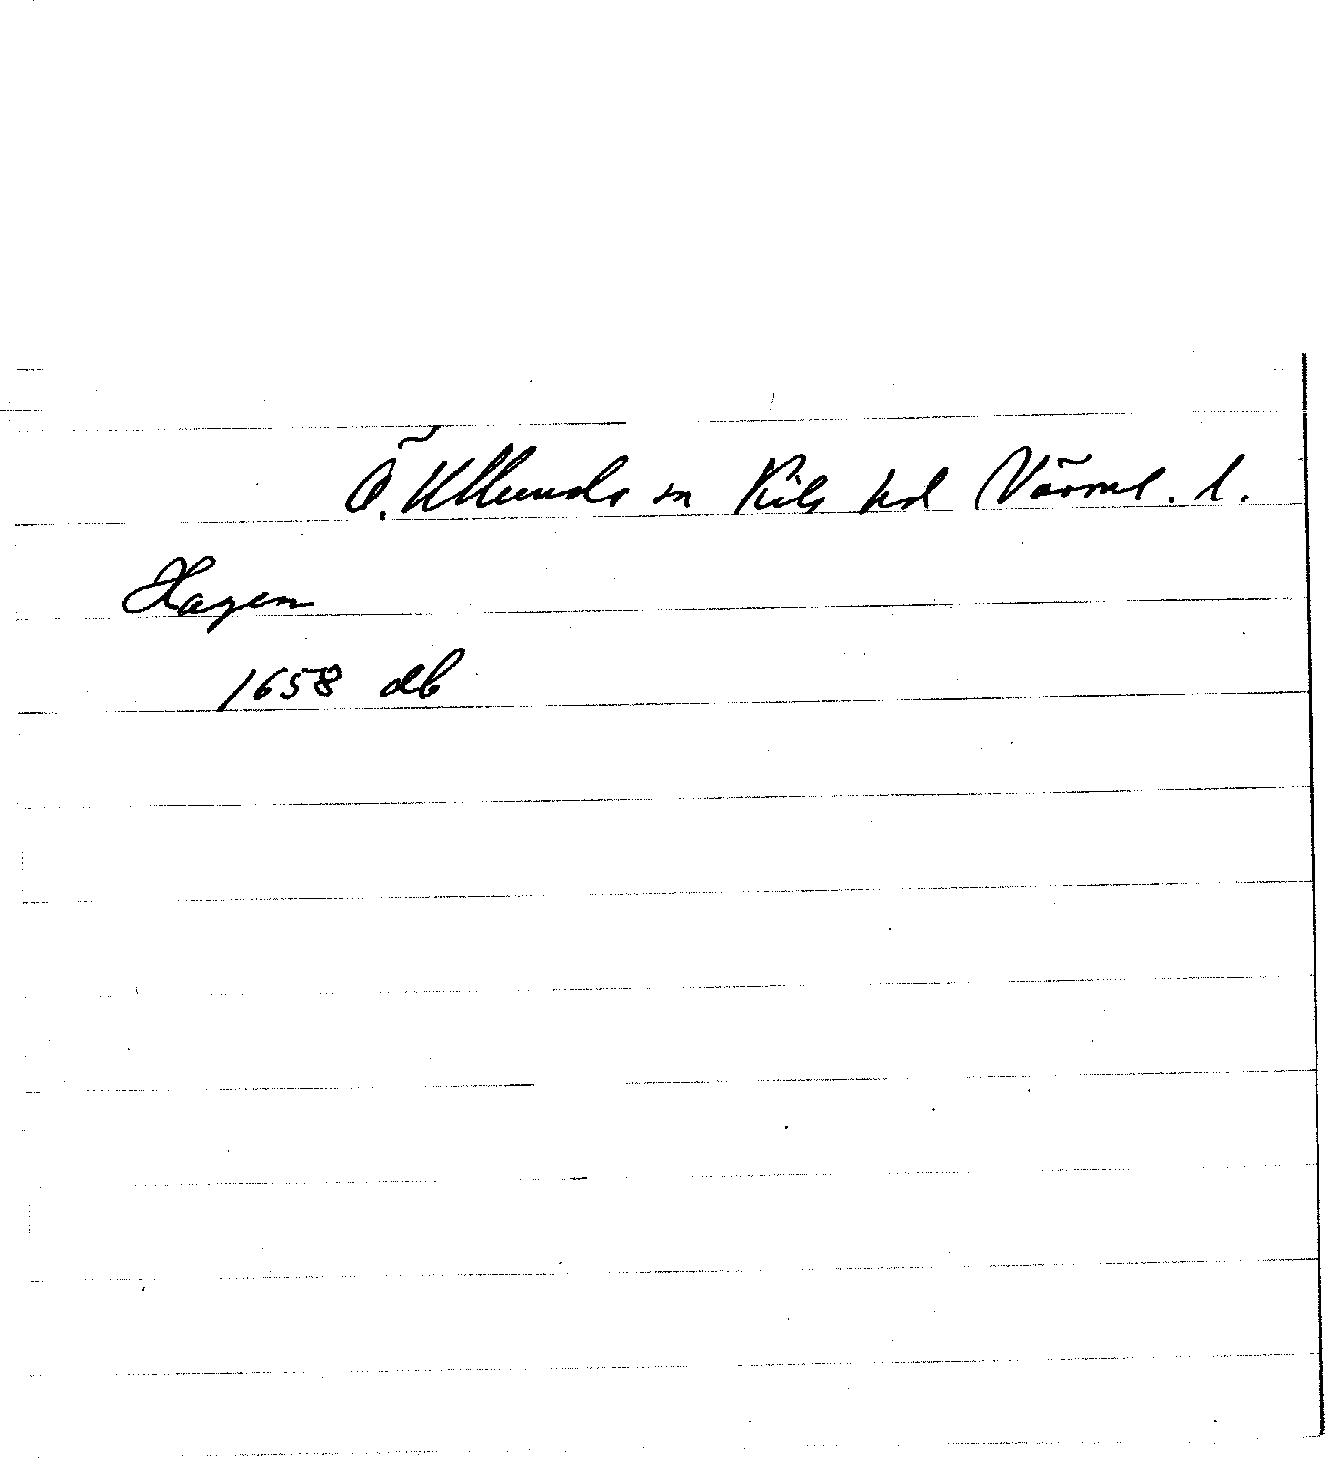 Ö. Ullerud sn Kils hd Värml. l.
Hagen
1658 db